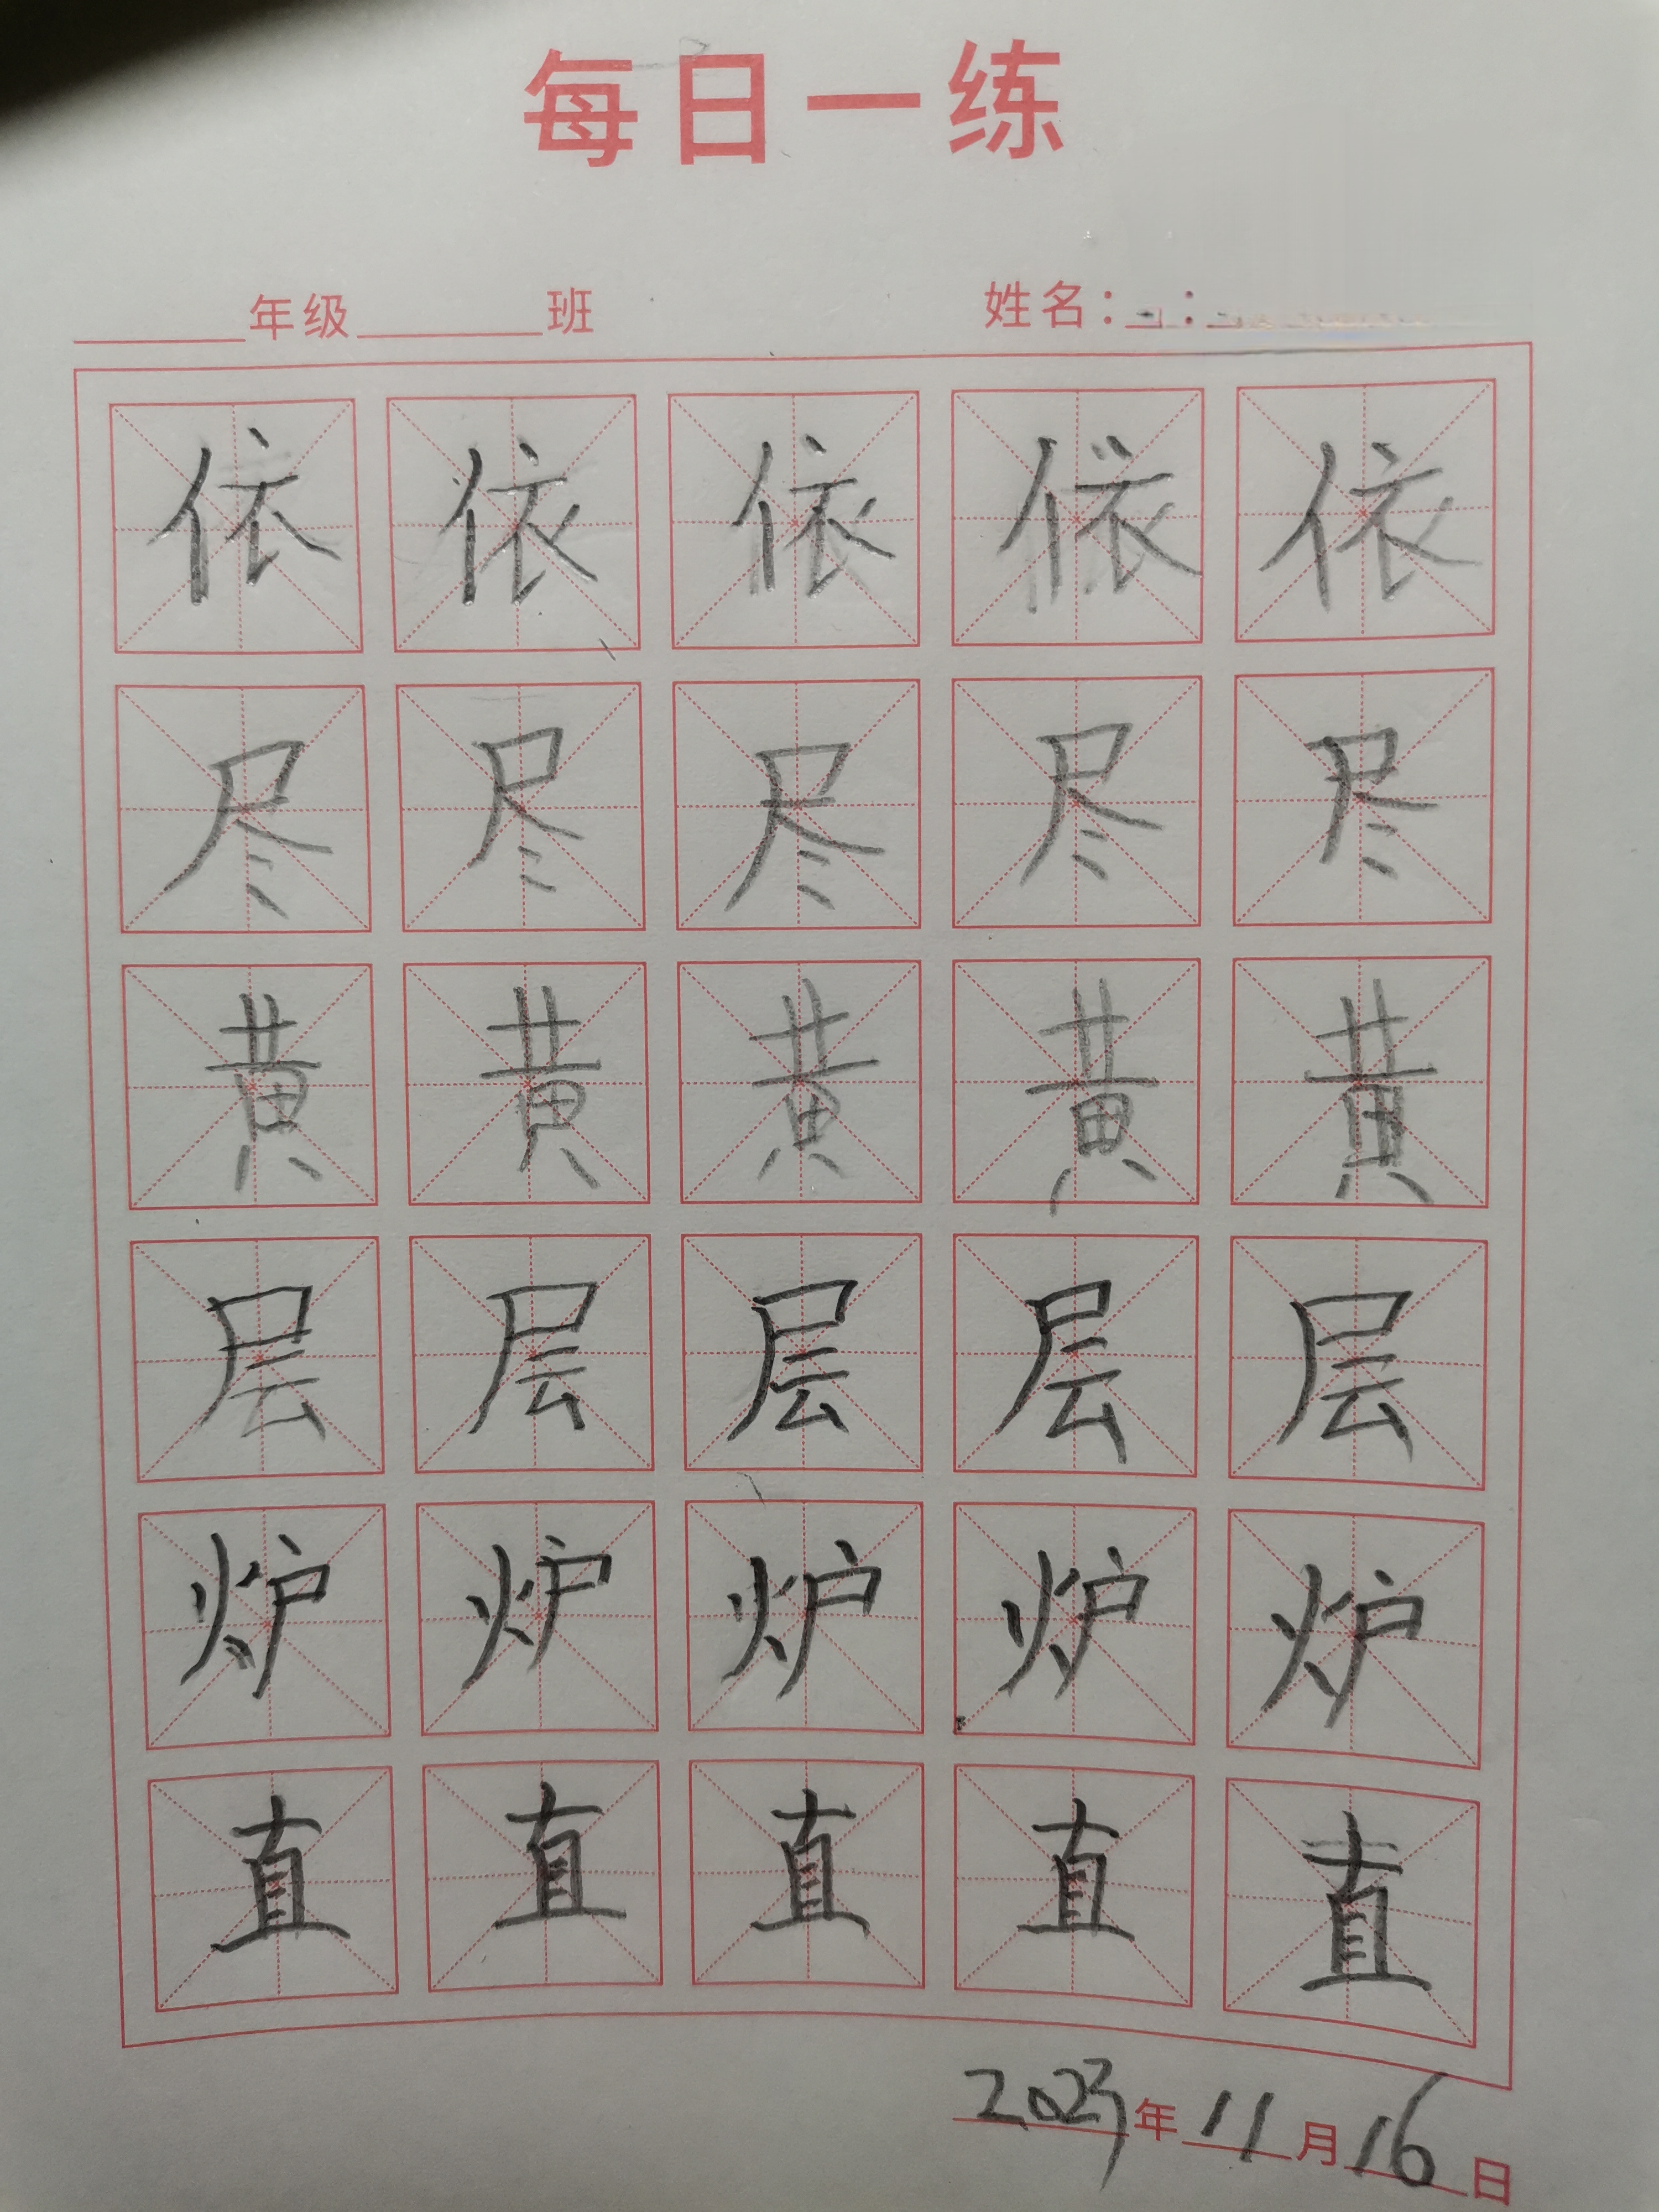 每日一练
年级 班 姓名：
依 依 依 依 依
尽 尽 尽 尽 尽
黄 黄 黄 黄 黄
层 层 层 层 层
炉 炉 炉 炉 炉
直 直 直 直 直
2023年11月16日